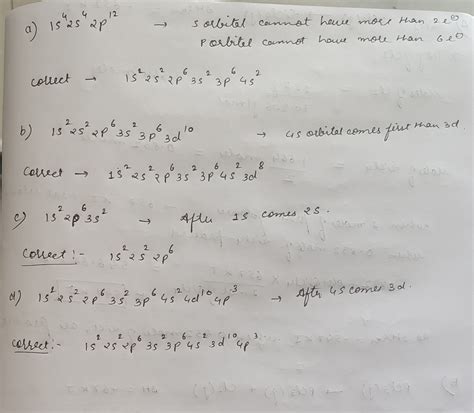 a) 1s⁴2s⁴2p¹² → s orbital cannot have more than 2e⊖
p orbital cannot have more than 6e⊖
Correct → 1s²2s²2p⁶3s²3p⁶4s²
b) 1s²2s²2p⁶3s²3p⁶3d¹⁰ → 4s orbital comes first than 3d
Correct → 1s²2s²2p⁶3s²3p⁶4s²3d⁸
c) 1s²2p⁶3s² → After 1s comes 2s.
Correct:- 1s²2s²2p⁶
d) 1s²2s²2p⁶3s²3p⁶4s²4d¹⁰4p³ → After 4s comes 3d.
Correct:- 1s²2s²2p⁶3s²3p⁶4s²3d¹⁰4p³